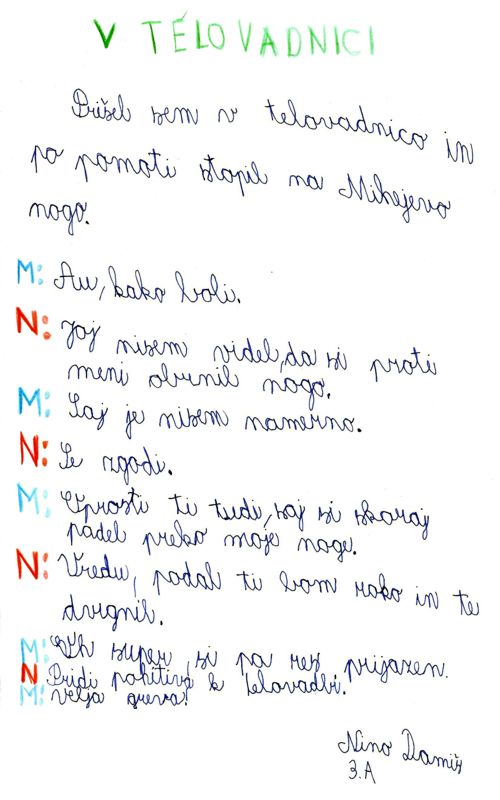 V TELOVADNICI
Prišel sem v telovadnico in
po pomoti stopil na Mihejevo
nogo.
M: Au, kako boli.
N: Joj nisem videl, da si proti
meni obrnil nogo.
M: Saj je nisem namerno.
N: Se zgodi.
M: Oprosti ti tudi, saj si skoraj
padel preko moje noge.
N: Vredu, podal ti bom roko in te
dvignil.
M: Uh super, si pa res prijazen.
N: Pridi pohitiva k telovadbi.
M: Velja greva!
Nino Damiš
3.A